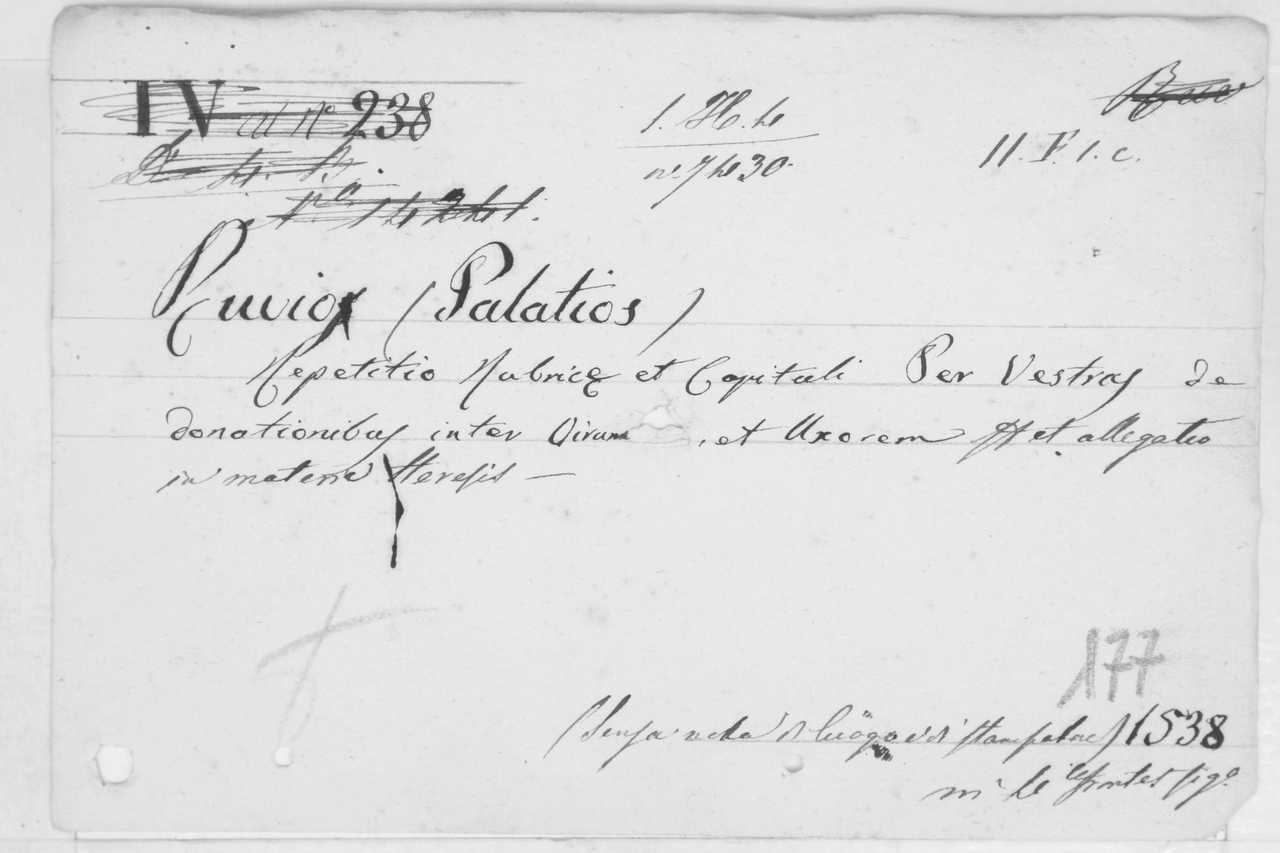 IV 238
1. H. 4
11. F. 1. c.
n° 7430
Ruvio (Palatios)
Repetitio Rubricę et Capituli Per Vestras de
donationibus inter Virum et Uxorem et allegatio
in materia Heresis —
177
(Senza nota di luogo e di stampatore) 1538